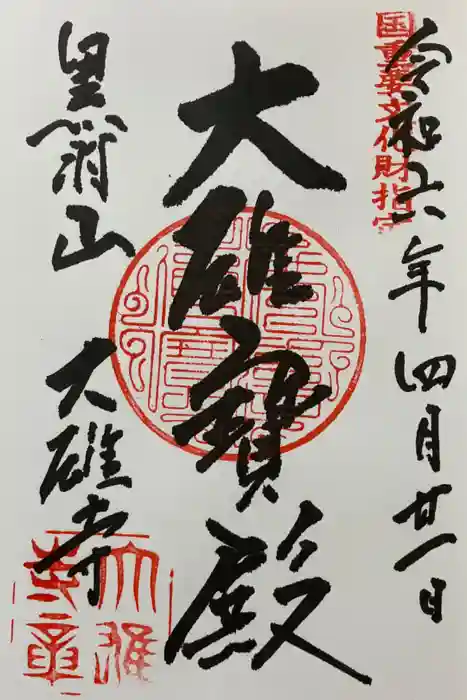 国重要文化財指定
令和六年四月廿一日
大雄寳殿
黒羽山
大雄寺